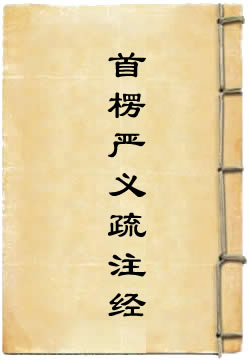 首楞严义疏注经